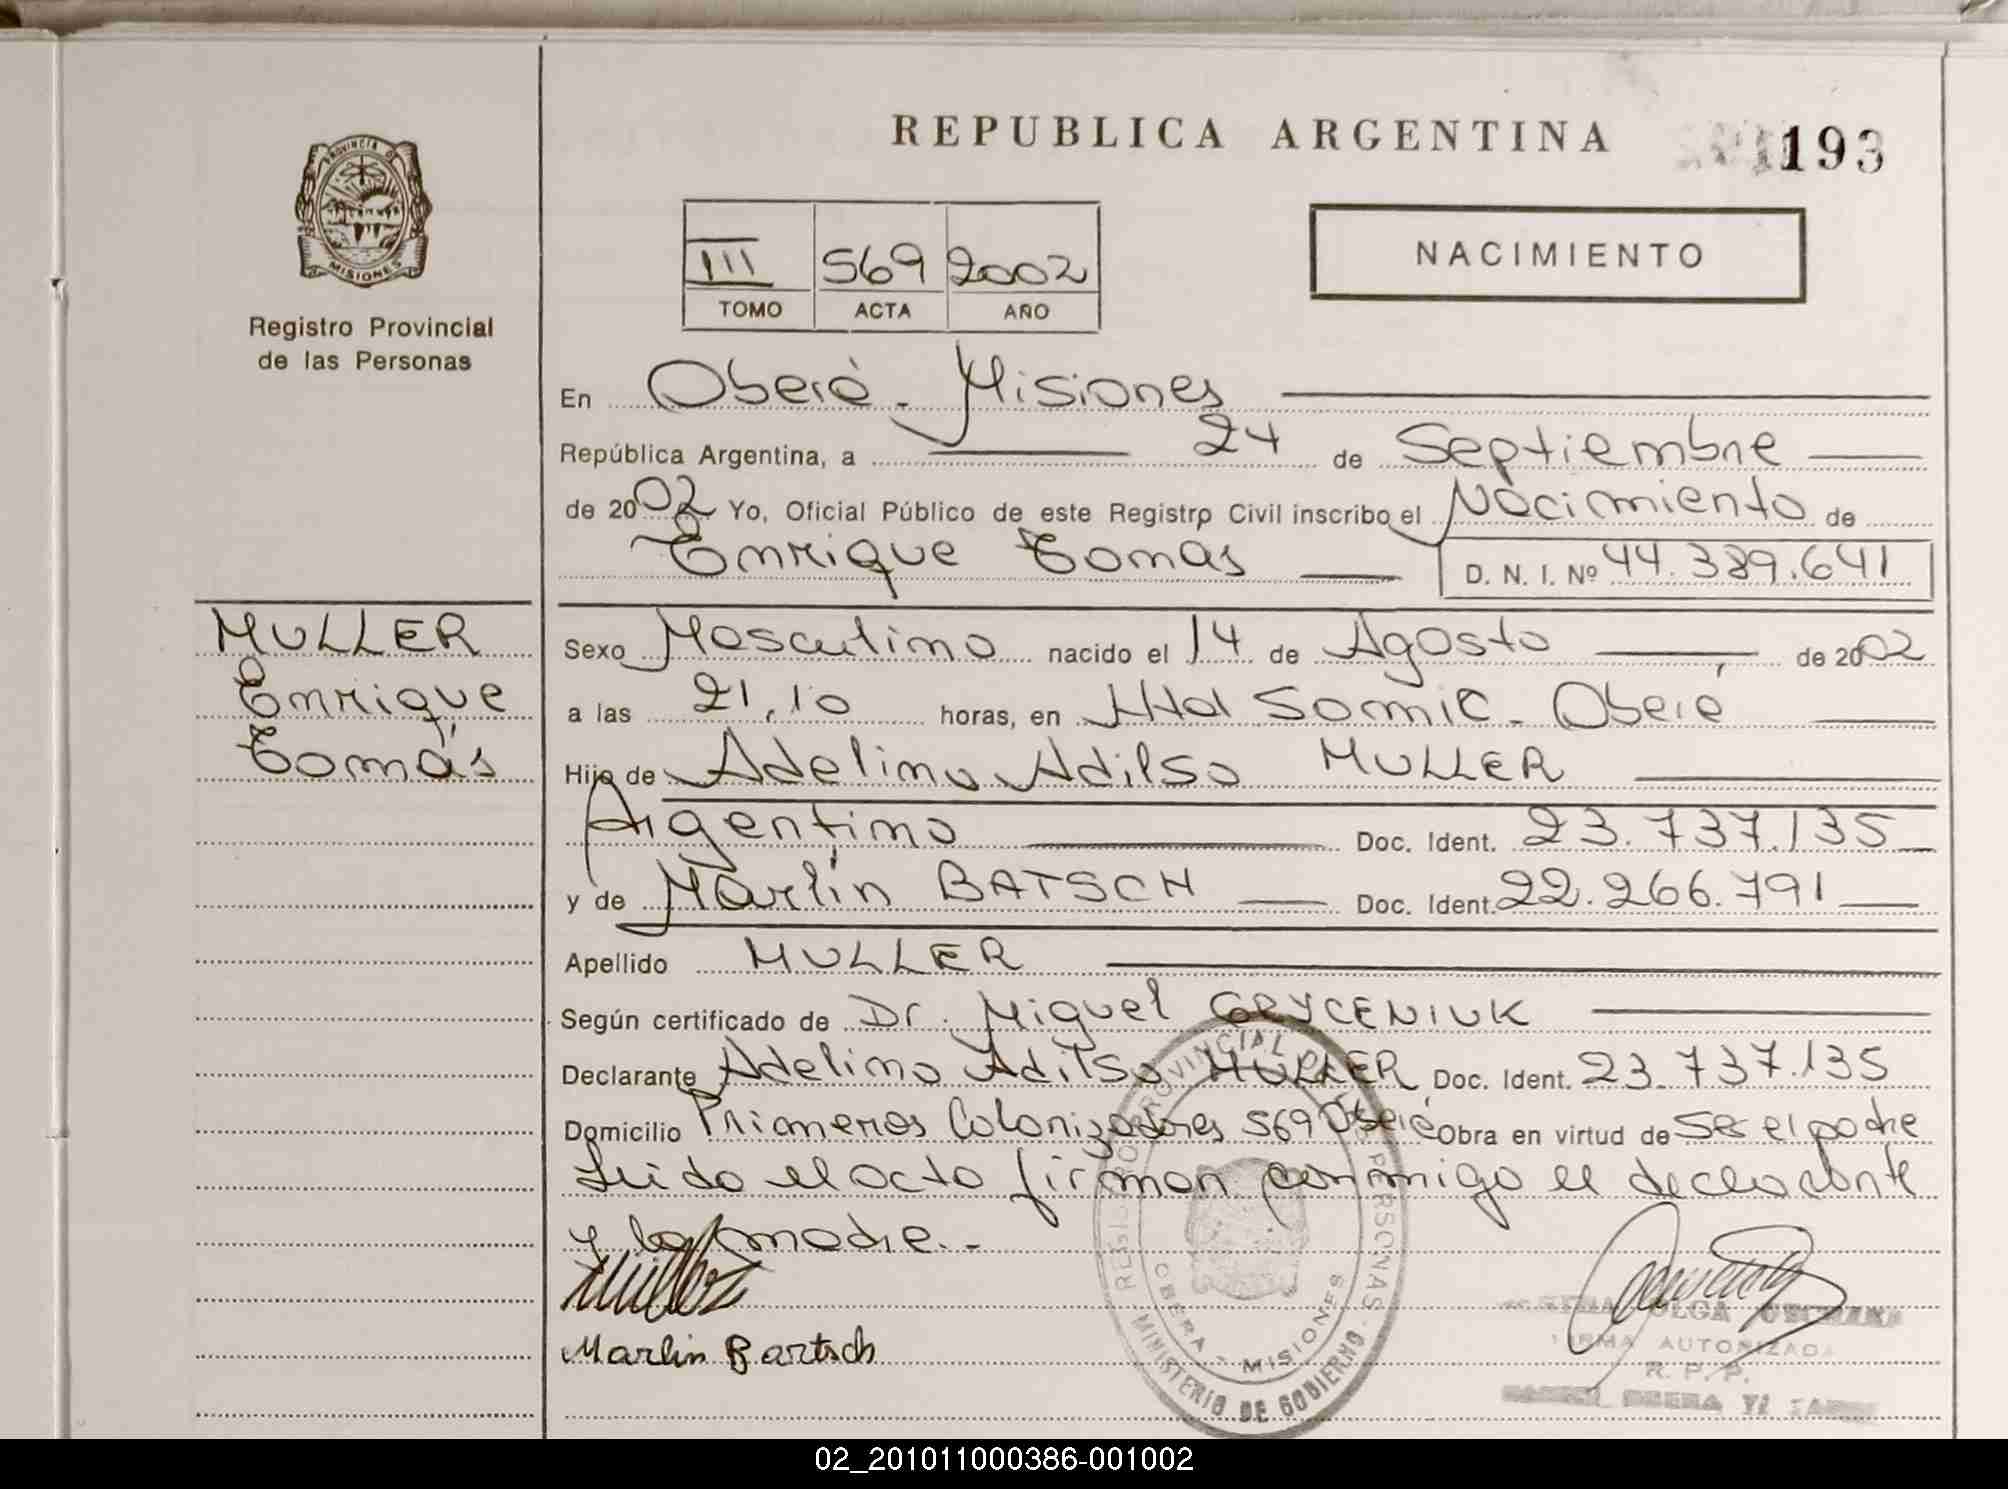 REPUBLICA ARGENTINA
193
PROVINCIA DE
MISIONES
Registro Provincial
de las Personas
III 569 2002
TOMO ACTA AÑO
NACIMIENTO
En Oberá - Misiones
República Argentina, a 24 de Septiembre
de 2002 Yo, Oficial Público de este Registro Civil inscribo el Nacimiento de
Enrique Tomas
D. N. I. Nº 44.389.641
MULLER
Enrique
Tomás
Sexo Masculino nacido el 14 de Agosto de 2002
a las 21,10 horas, en Htal Samic - Oberá
Hijo de Adelino Adilso MULLER
Argentino Doc. Ident. 23.737.135
y de Marlin BATSCH Doc. Ident. 22.266.791
Apellido MULLER
Según certificado de Dr. Miguel GRYCENIUK
Declarante Adelino Adilso MULLER Doc. Ident. 23.737.135
Domicilio Primeros Colonizadores 569 Oberá Obra en virtud de ser el padre
Leido el acta firman conmigo el declarante
y la madre.-
Muller
Marlin Bartsch
REGISTRO PROVINCIAL DE LAS PERSONAS
OBERA - MISIONES
MINISTERIO DE GOBIERNO
OLGA
FIRMA AUTORIZADA
R. P. P.
02_201011000386-001002